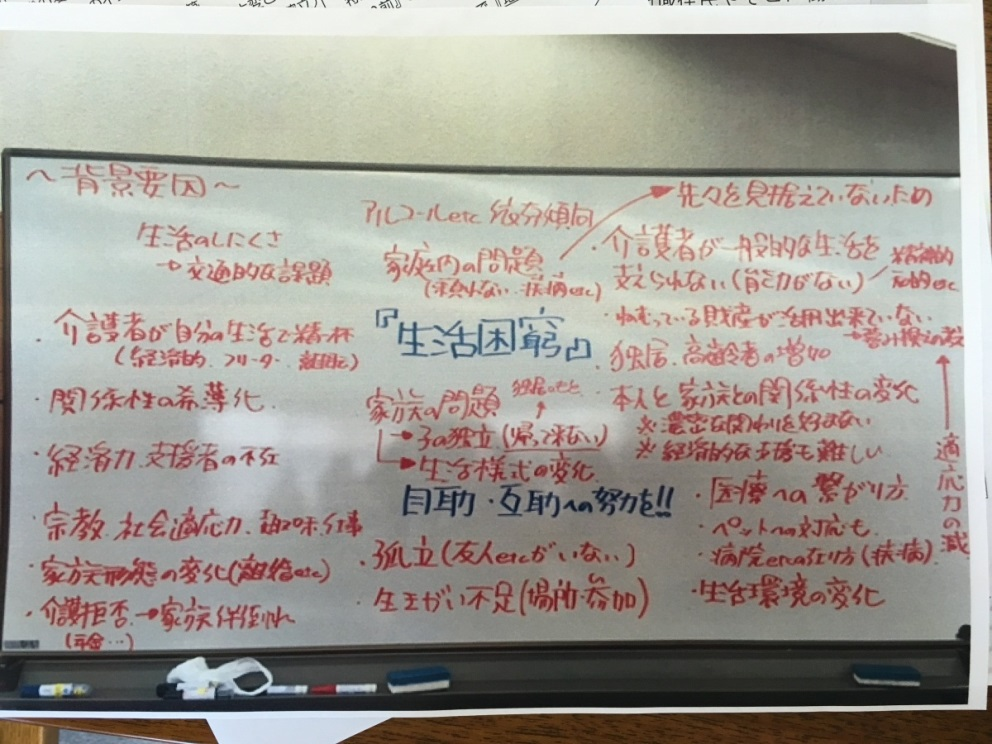 ～背景要因～
生活のしにくさ
→交通的な課題
・介護者が自分の生活で精一杯
(経済的、フリーター、離職)
・関係性の希薄化
・経済力、支援者の不在
・宗教、社会適応力、趣味、仕事
・家族形態の変化(離婚etc)
・介護拒否→家族共倒れ
アルコールetc 依存傾向
家庭内の問題
(頼れない、疾病etc)
『生活困窮』
家族の問題
→子の独立(帰って来ない)
→生活様式の変化
自助・互助への努力を!!
・孤立(友人etcがいない)
・生きがい不足(場所・参加)
先々を見据えていないため
・介護者が一般的な生活を
支えられない(能力がない)
精神的
知的etc
・ねむっている財産が活用出来ていない
・独居、高齢者の増加
・本人と家族との関係性の変化
※濃密な関わりを好まない
※経済的な支援も難しい
・医療への繋がり方
・ペットへの対応も
・病院etcの在り方(疾病)
・生活環境の変化
適応力の減